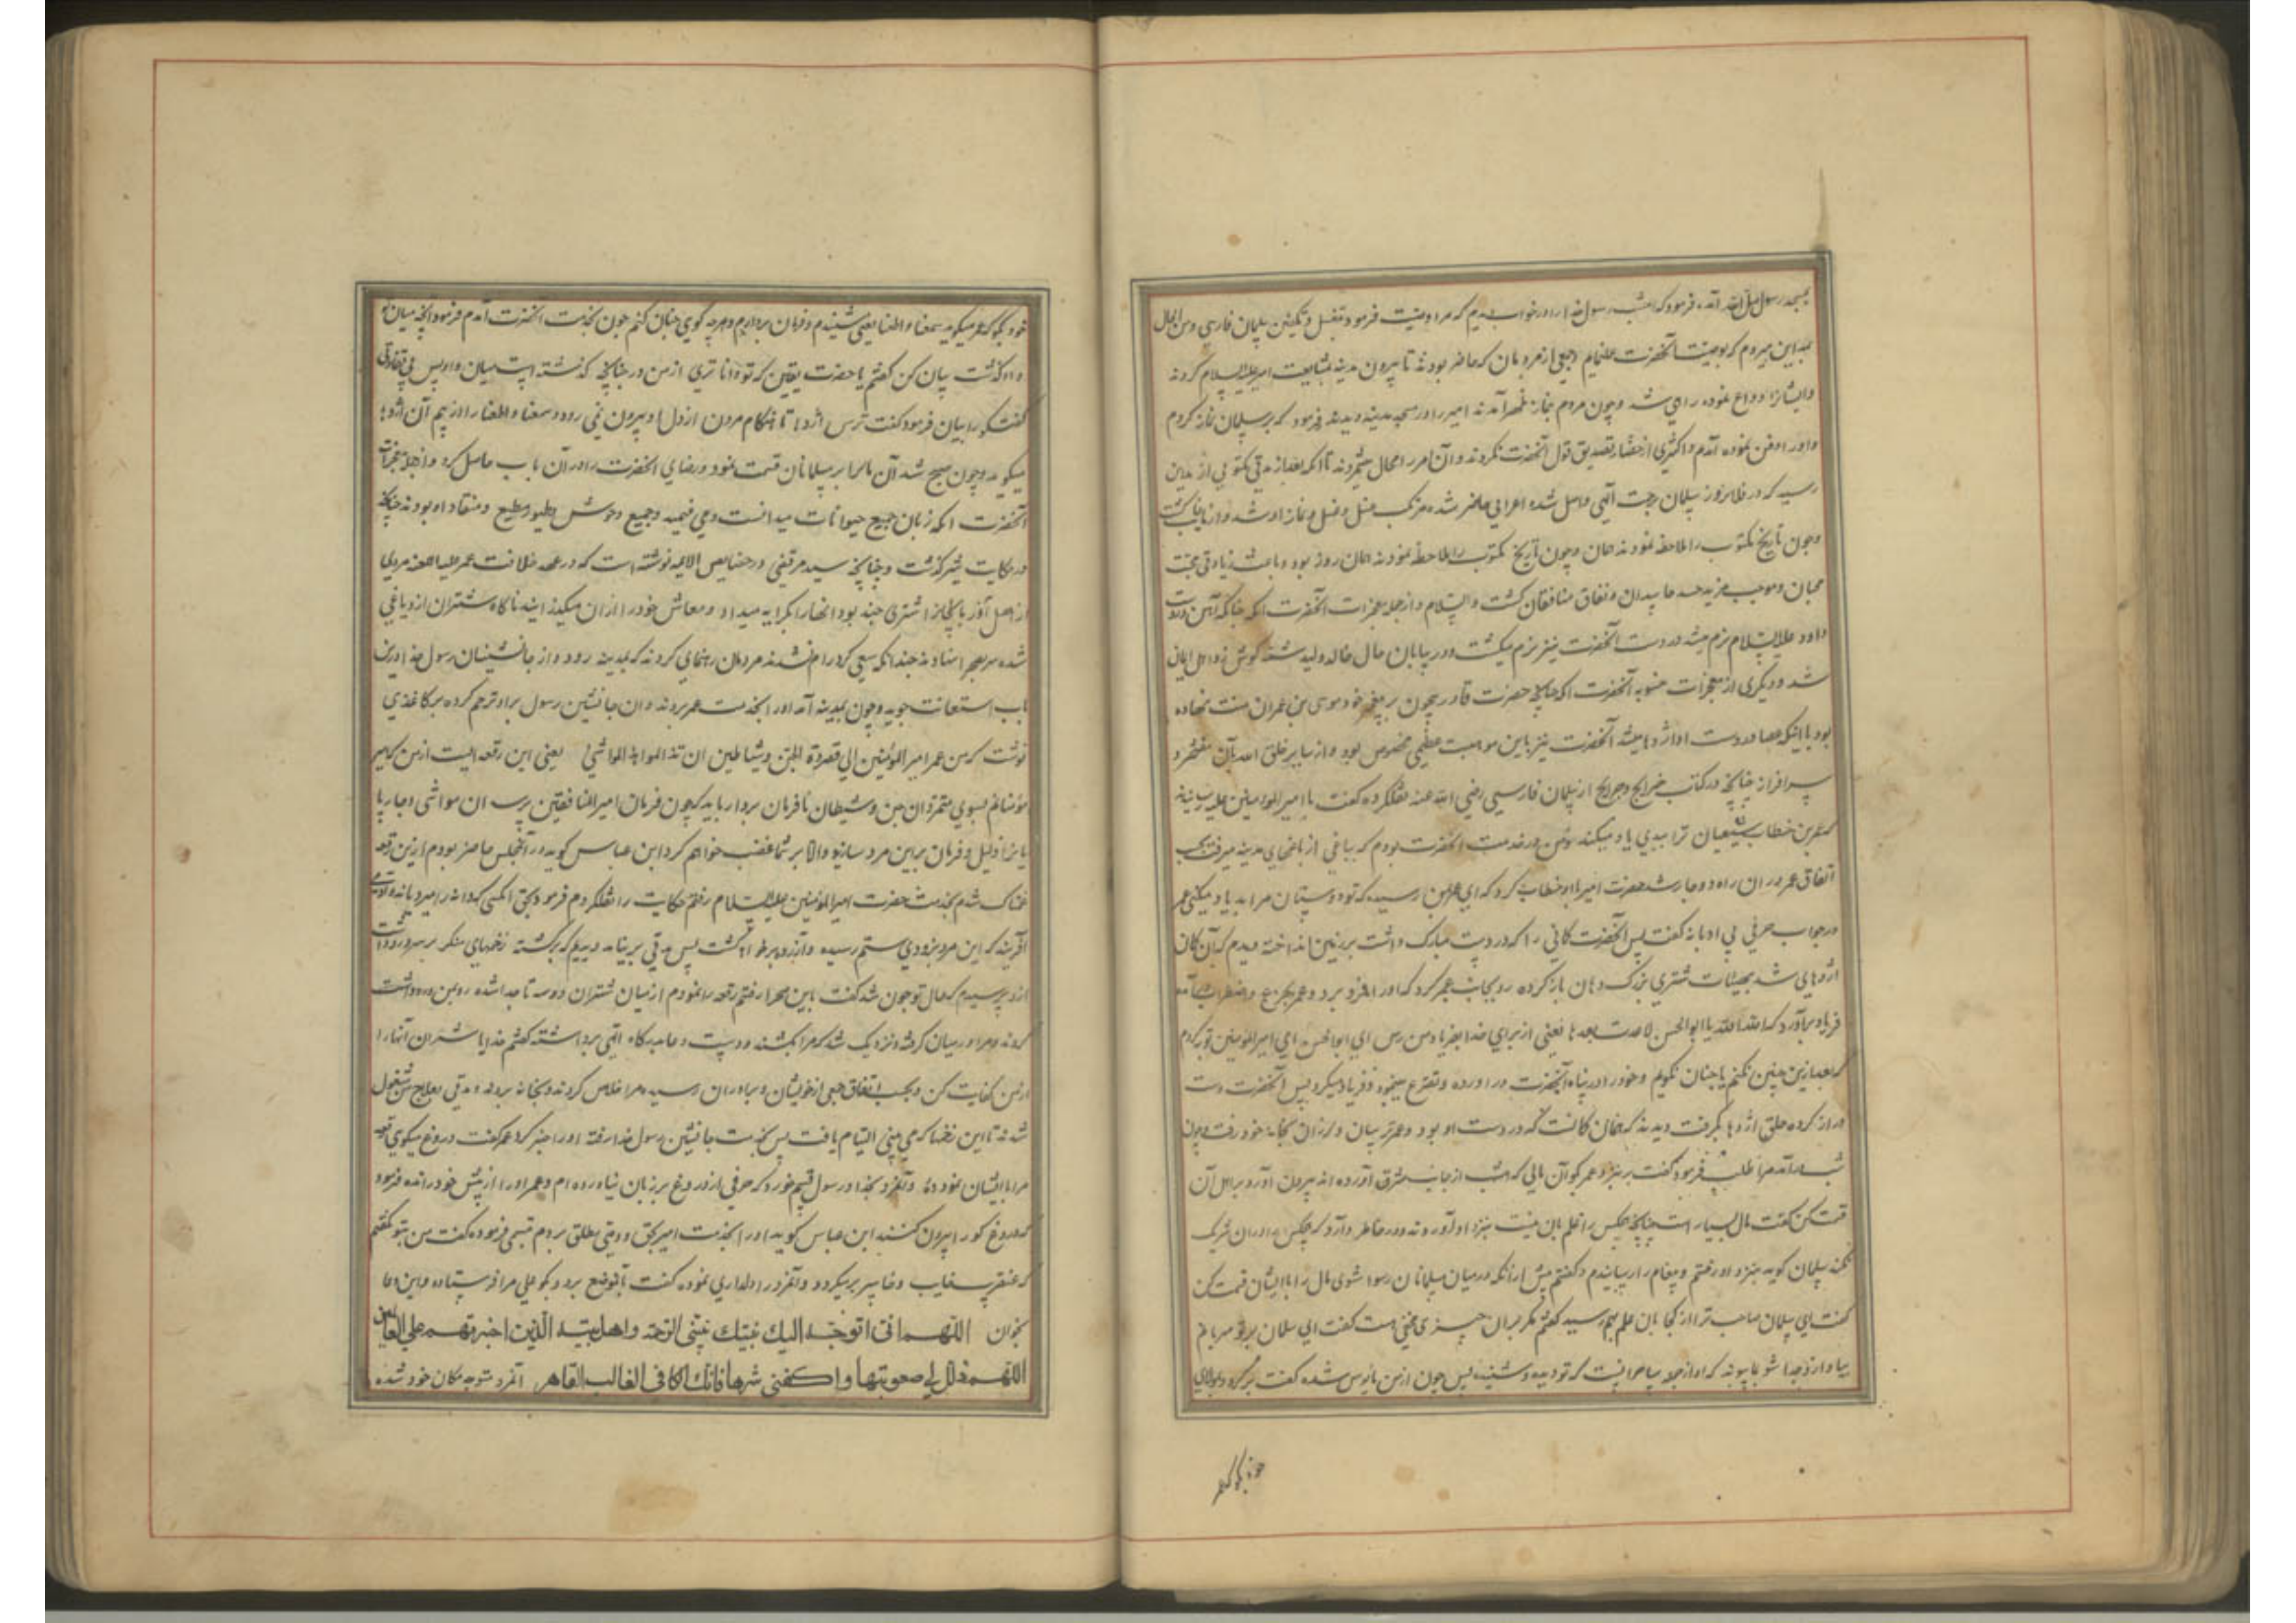 بمسجد رسول صلی الله آمد، فرمود که امشب رسول خدا را در خواب دیدم که مرا وصیت فرمود بغسل و تکفین سلمان فارسی و من الحال
بمداین میروم که بوصیت آنحضرت عمل نمایم و جمعی از مردمان که حاضر بودند تا بیرون مدینه بمشایعت امیر علیه السلام کردند
و ایشانرا وداع نموده راهی شد و چون مردم بنماز ظهر آمدند امیر را در مسجد مدینه دیدند فرمود که بر سلمان نماز کردم
و او را دفن نموده آمدم و اکثری از حضار تصدیق قول آنحضرت نکردند و آن امر را محال شمردند تا آنکه بعد از مدتی مکتوبی از مداین
رسید که در فلان روز سلمان برحمت آلهی واصل شده اعرابی حاضر شده مرتکب غسل و کفن و نماز او شد و از ما غایب گشت
و چون تاریخ مکتوب را ملاحظه نمودند همان و چون تاریخ مکتوب را ملاحظه نمودند همان روز بود و باعث زیادتی محبت
محبان و موجب مزید حسد حاسدان و نفاق منافقان گشت والسلام و از جمله معجزات آنحضرت آنکه چنانکه آهن در دست
داود علیه السلام نرم میشد در دست آنحضرت نیز نرم میگشت و در پایان حال خالد ولید شمه گوش زد اهل ایمان
شد و دیگری از معجزات منسوبه آنحضرت آنکه چنانچه حضرت قادر بیچون بر پیغمبر خود موسی بن عمران منت نهاده
بود باینکه عصا در دست او اژدها میشد آنحضرت نیز باین موهبت عظمی مخصوص بود و از سایر خلق الله بآن مفتخر و
سرافراز چنانچه در کتاب خرایج و جرایح از سلمان فارسی رضی الله عنه نقل کرده گفت با امیر المومنین علیه رسانیدند
که عمر بن خطاب شیعیان ترا ببدی یاد میکند و من در خدمت آنحضرت بودم که بباغی از باغهای مدینه میرفت بحسب
اتفاق عمر در آن راه دوچار شد حضرت امیر با او خطاب کرد که ای عمر بمن رسیده که تو دوستان مرا بد یاد میکنی عمر
در جواب حرفی بی ادبانه گفت پس آنحضرت کمانی را که در دست مبارک داشت بر زمین انداخته دیدم که آن کمان
اژدهایی شد بهیئات شتری بزرک و دهان باز کرده رو بجانب عمر کرد که او را فرو برد و عمر بجزع و اضطراب آمده
فریاد برآورد که الله الله یا ابو الحسن لاعدت بعدها یعنی از برای خدا بفریاد من رس ای ابو الحسن ای امیر المومنین توبه کردم
که بعد ازین چنین نکنم یا چنان نگویم و خود را در پناه آنحضرت در آورده و تضرع مینمود و فریاد میکرد پس آنحضرت دست
دراز کرده حلق اژدها بگرفت دیدند که همان کمانست که در دست او بود و عمر ترسان و لرزان بخانه خود رفت و چون
شب در آمد مرا طلب فرمود گفت برو نزد عمر بگو آن مالی که امشب از جانب مشرق آورده اند بیرون آور و بر اهل آن
قسمت کن گفت مال بسیار است چنانچه هیچکس را علم بآن نیست بنزد او آورده اند و در خاطر دارد که هیچکس را در آن شریک
نکند سلمان گوید بنزد او رفتم و پیغام را رسانیدم و گفتم پیش از آنکه در میان مسلمانان رسوا شوی مال را با ایشان قسمت کن
گفت ای سلمان صاحب ترا از کجا بآن علم بهم رسید گفتم مگر بر آن چیزی مخفی هست گفت ای سلمان بر تو مهربانم
بیا و ازو جدا شو بما پیوند که او از جمله ساحرانیست که تو دیده و شنیده پس چون از من مایوس شده گفت برگرد و بمولای
خود بگو که عمر
خود بگو که عمر میگوید سمعنا و اطعنا یعنی شنیدم و فرمان بردارم و هرچه گوی چنان کنم چون بخدمت آنحضرت آمدم فرمود آنچه میان تو
و او گذشت بیان کن گفتم یا حضرت یقین که تو داناتری از من در چنانچه گذشته است میان ما و او پس بی تفاوت
گفتگو را بیان فرمود گفت ترس اژدها تا هنگام مردن از دل او بیرون نمی رود و سمعنا و اطعنا را از بیم آن اژدها
میگوید و چون صبح شد آن مال را بر مسلمانان قسمت نمود و رضای آنحضرت را در آن باب حاصل کرد و از جمله معجزات
آنحضرت آنکه زبان جمیع حیوانات میدانست و می فهمید و جمیع وحوش و طیور مطیع و منقاد او بودند چنانکه
در حکایت شیر گذشت و چنانچه سید مرتضی در خصایص الایمه نوشته است که در عهد خلافت عمر علیه اللعنه مردی
از اهل آذربایجانرا شتری چند بود آنها را بکرایه میداد و معاش خود را از آن میگذرانید ناگاه شتران ازو یاغی
شده سر بصحرا نهادند چندانکه سعی کرد رام نشدند مردمان رهنمای کردند که بمدینه رود و از جانشینان رسول خدا درین
باب استعانت جوید و چون بمدینه آمد او را بخدمت عمر بردند و آن جانشین رسول بر او ترحم کرده بر کاغذی
نوشت که من عمر امیر المومنین الی مردة الجن و شیاطین ان تذللوا هذه المواشی له یعنی این رقعه ایست از من که امیر
مومنانم بسوی متمردان جن و شیطان نافرمان بردار باید که چون فرمان امیر المنافقین برسد آن مواشی و چارپا
یانرا ذلیل و فرمان بر این مرد سازید والا بر شما غضب خواهم کرد ابن عباس گوید در آنمجلس حاضر بودم ازین رقعه
غمناک شدم بخدمت حضرت امیر المومنین علیه السلام رفتم حکایت را نقل کردم فرمود بحق آنکسی که دانه را میرویاند و آدمی
آفریند که این مرد بزودی ستم رسیده و آزرده بر خواهد گشت پس مدتی بر نیامد دیدیم که برگشته زخمهای منکر بر سر و رو داشت
ازو پرسیدم که حال تو چون شد گفت باین صحرا رفتم رقعه را نمودم از میان شتران دو سه تا جدا شده رو بمن دوانیدند
کردند و مرا در میان گرفتند و نزدیک شد که مرا بکشند دو دست دعا بدرگاه آلهی برداشته گفتم خدایا شتران آنها را
از من کفایت کن و بحسب اتفاق جمعی از خویشان و برادران رسیدند مرا خلاص کردند و بخانه بردند و مدتی بعلاج من مشغول
شدند تا این زخمها که می بینی التیام یافت پس بخدمت جانشین رسول خدا رفته او را خبر کرد عمر گفت دروغ میگوی رقعه
مرا با ایشان ننموده و آنمرد بخدا و رسول قسم خورد که حرفی از دروغ بر زبان نیاورده ام و عمر او را از پیش خود رانده فرمود
که دروغ گو را بیرون کنند ابن عباس گوید او را بخدمت امیر بحق و وصی مطلق بردم تبسمی فرموده گفت من بتو نگفتم
که عنقریب خایب و خاسر بر میگردد و آنمرد را دلداری نموده گفت بآنموضع برو و بگو علی مرا فرستاده و این دعا
بخوان اللهم انی اتوجه الیک بنبیک نبی الرحمة و اهل بیته الذین اخترتهم علی العالمین
اللهم ذلل لی صعوبتها و اکفنی شرها فانک الکافی الغالب القاهر آنمرد متوجه مکان خود شده